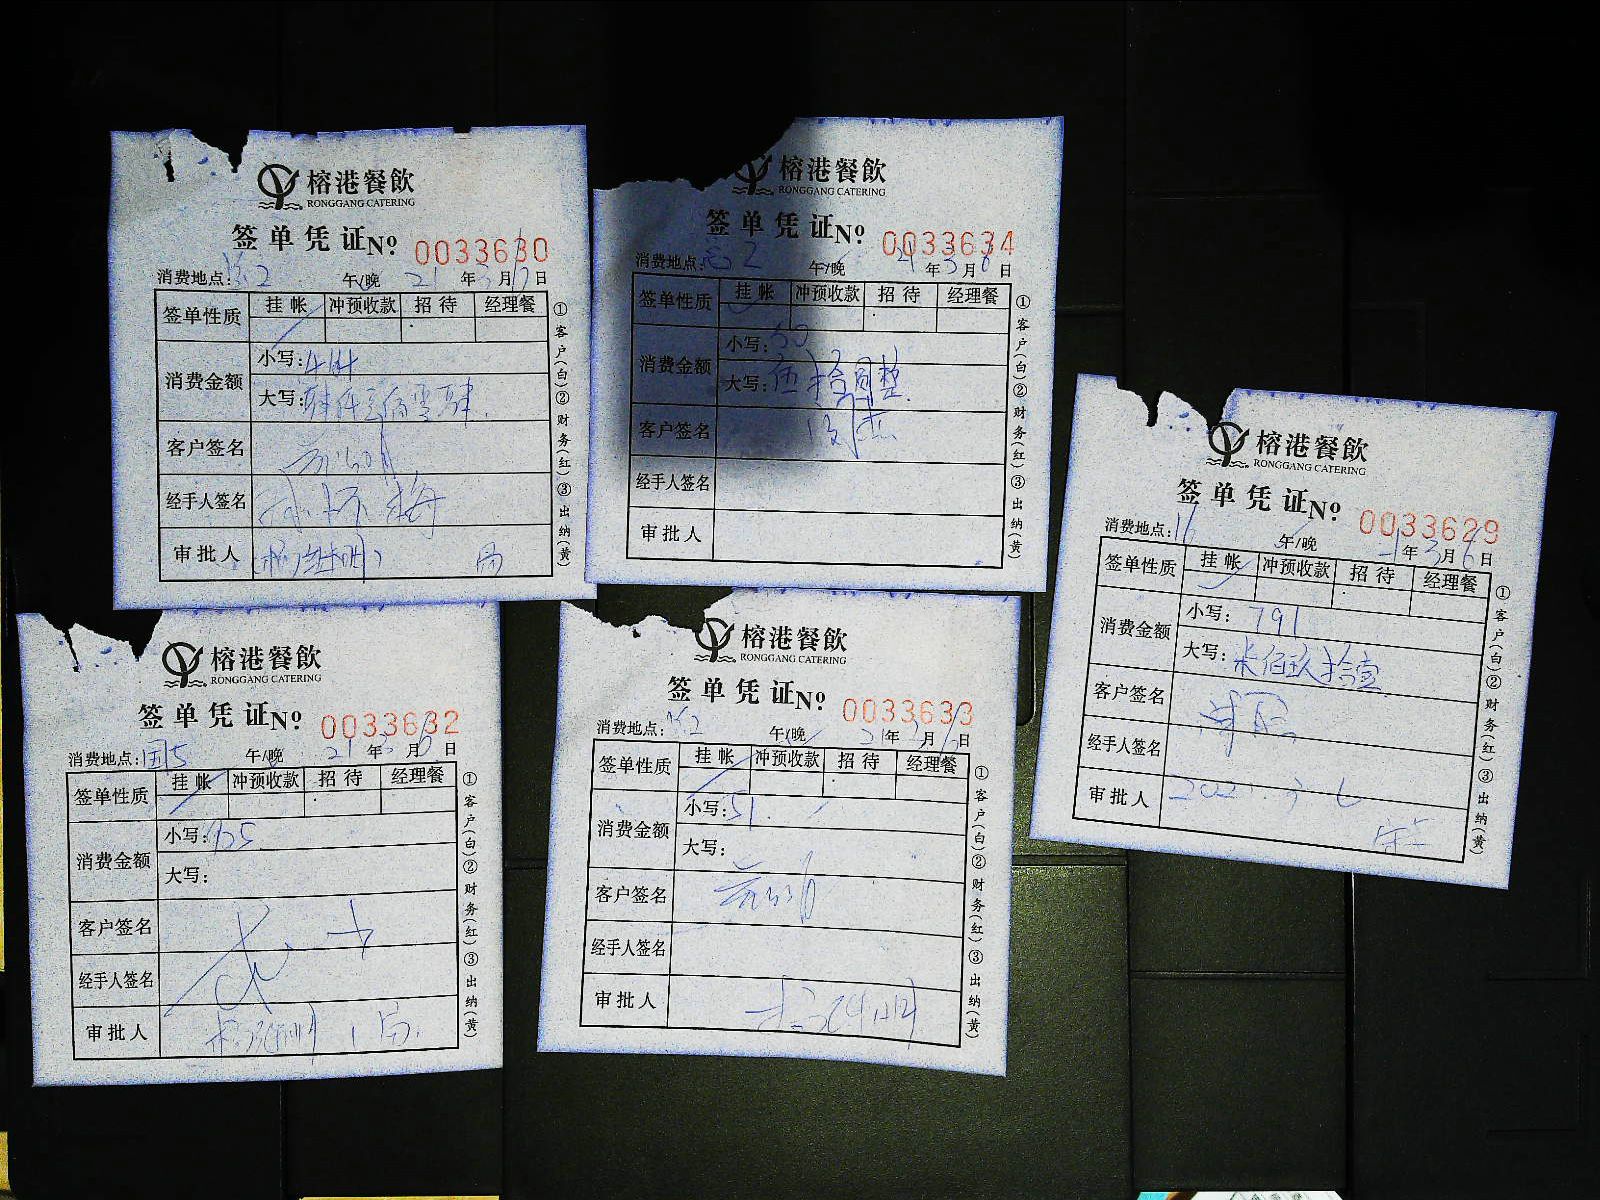 榕港餐飲
RONGGANG CATERING
签单凭证No. 0033630
消费地点: 午/晚 21年3月 日
签单性质 挂帐 冲预收款 招待 经理餐
消费金额 小写:
大写:
客户签名
经手人签名
审批人
①客户(白)②财务(红)③出纳(黄)
榕港餐飲
RONGGANG CATERING
签单凭证No. 0033634
消费地点: 午/晚 21年3月6日
签单性质 挂帐 冲预收款 招待 经理餐
消费金额 小写:50
大写:伍拾圆整
客户签名
经手人签名
审批人
①客户(白)②财务(红)③出纳(黄)
榕港餐飲
RONGGANG CATERING
签单凭证No. 0033629
消费地点:16 午/晚 21年3月6日
签单性质 挂帐 冲预收款 招待 经理餐
消费金额 小写:791
大写:柒佰玖拾壹
客户签名
经手人签名
审批人 2021.3.6
①客户(白)②财务(红)③出纳(黄)
榕港餐飲
RONGGANG CATERING
签单凭证No. 0033632
消费地点: 午/晚 21年3月6日
签单性质 挂帐 冲预收款 招待 经理餐
消费金额 小写:
大写:
客户签名
经手人签名
审批人
①客户(白)②财务(红)③出纳(黄)
榕港餐飲
RONGGANG CATERING
签单凭证No. 0033633
消费地点: 午/晚 21年3月 日
签单性质 挂帐 冲预收款 招待 经理餐
消费金额 小写:51
大写:
客户签名
经手人签名
审批人
①客户(白)②财务(红)③出纳(黄)